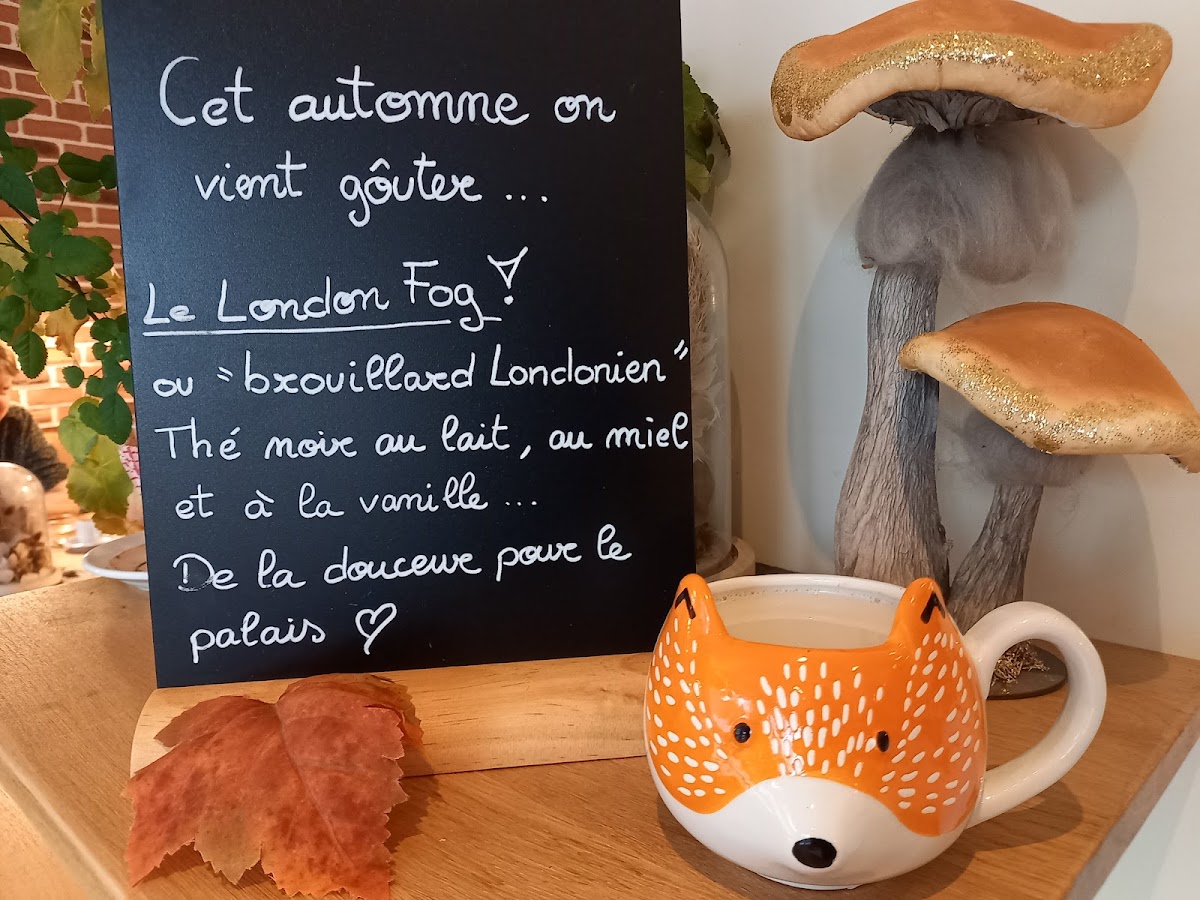 Cet automne on
vient goûter ...
Le London Fog !
ou "brouillard Londonien"
Thé noir au lait, au miel
et à la vanille ...
De la douceur pour le
palais ♡